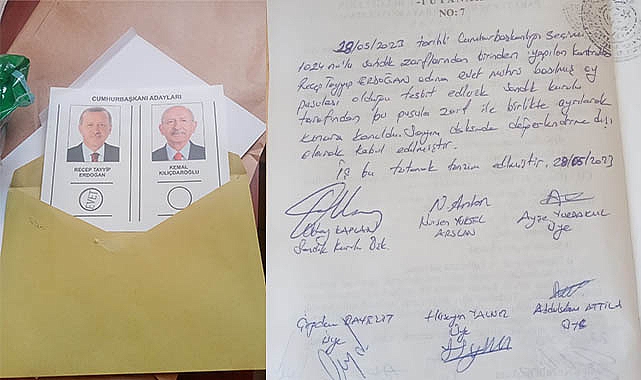 CUMHURBAŞKANI ADAYLARI
RECEP TAYYİP
ERDOĞAN
KEMAL
KILIÇDAROĞLU
EVET
TUTANA
NO: 7
28/05/2023 tarihli Cumhurbaşkanlığı Seçimi
1024 nolu sandık zarflarından birinden yapılan kontrolde
Recep Tayyip ERDOĞAN adına evet mührü basılmış oy
pusulası olduğu tesbit edilerek sandık kurulu
tarafından bu pusula zarf ile birlikte ayrılarak
kenara konuldu. Sayım dışı
olarak kabul edilmiştir.
İş bu tutanak tanzim edilmiştir. 28/05/2023
KAPLAN
Sandık Kurulu
N. Arslan
Nursen YÜKSEL
ARSLAN
Ayşe
Üye
Çiğdem
Üye
Hüseyin YALNIZ
Üye
Abdulselam ATTİLA
Üye